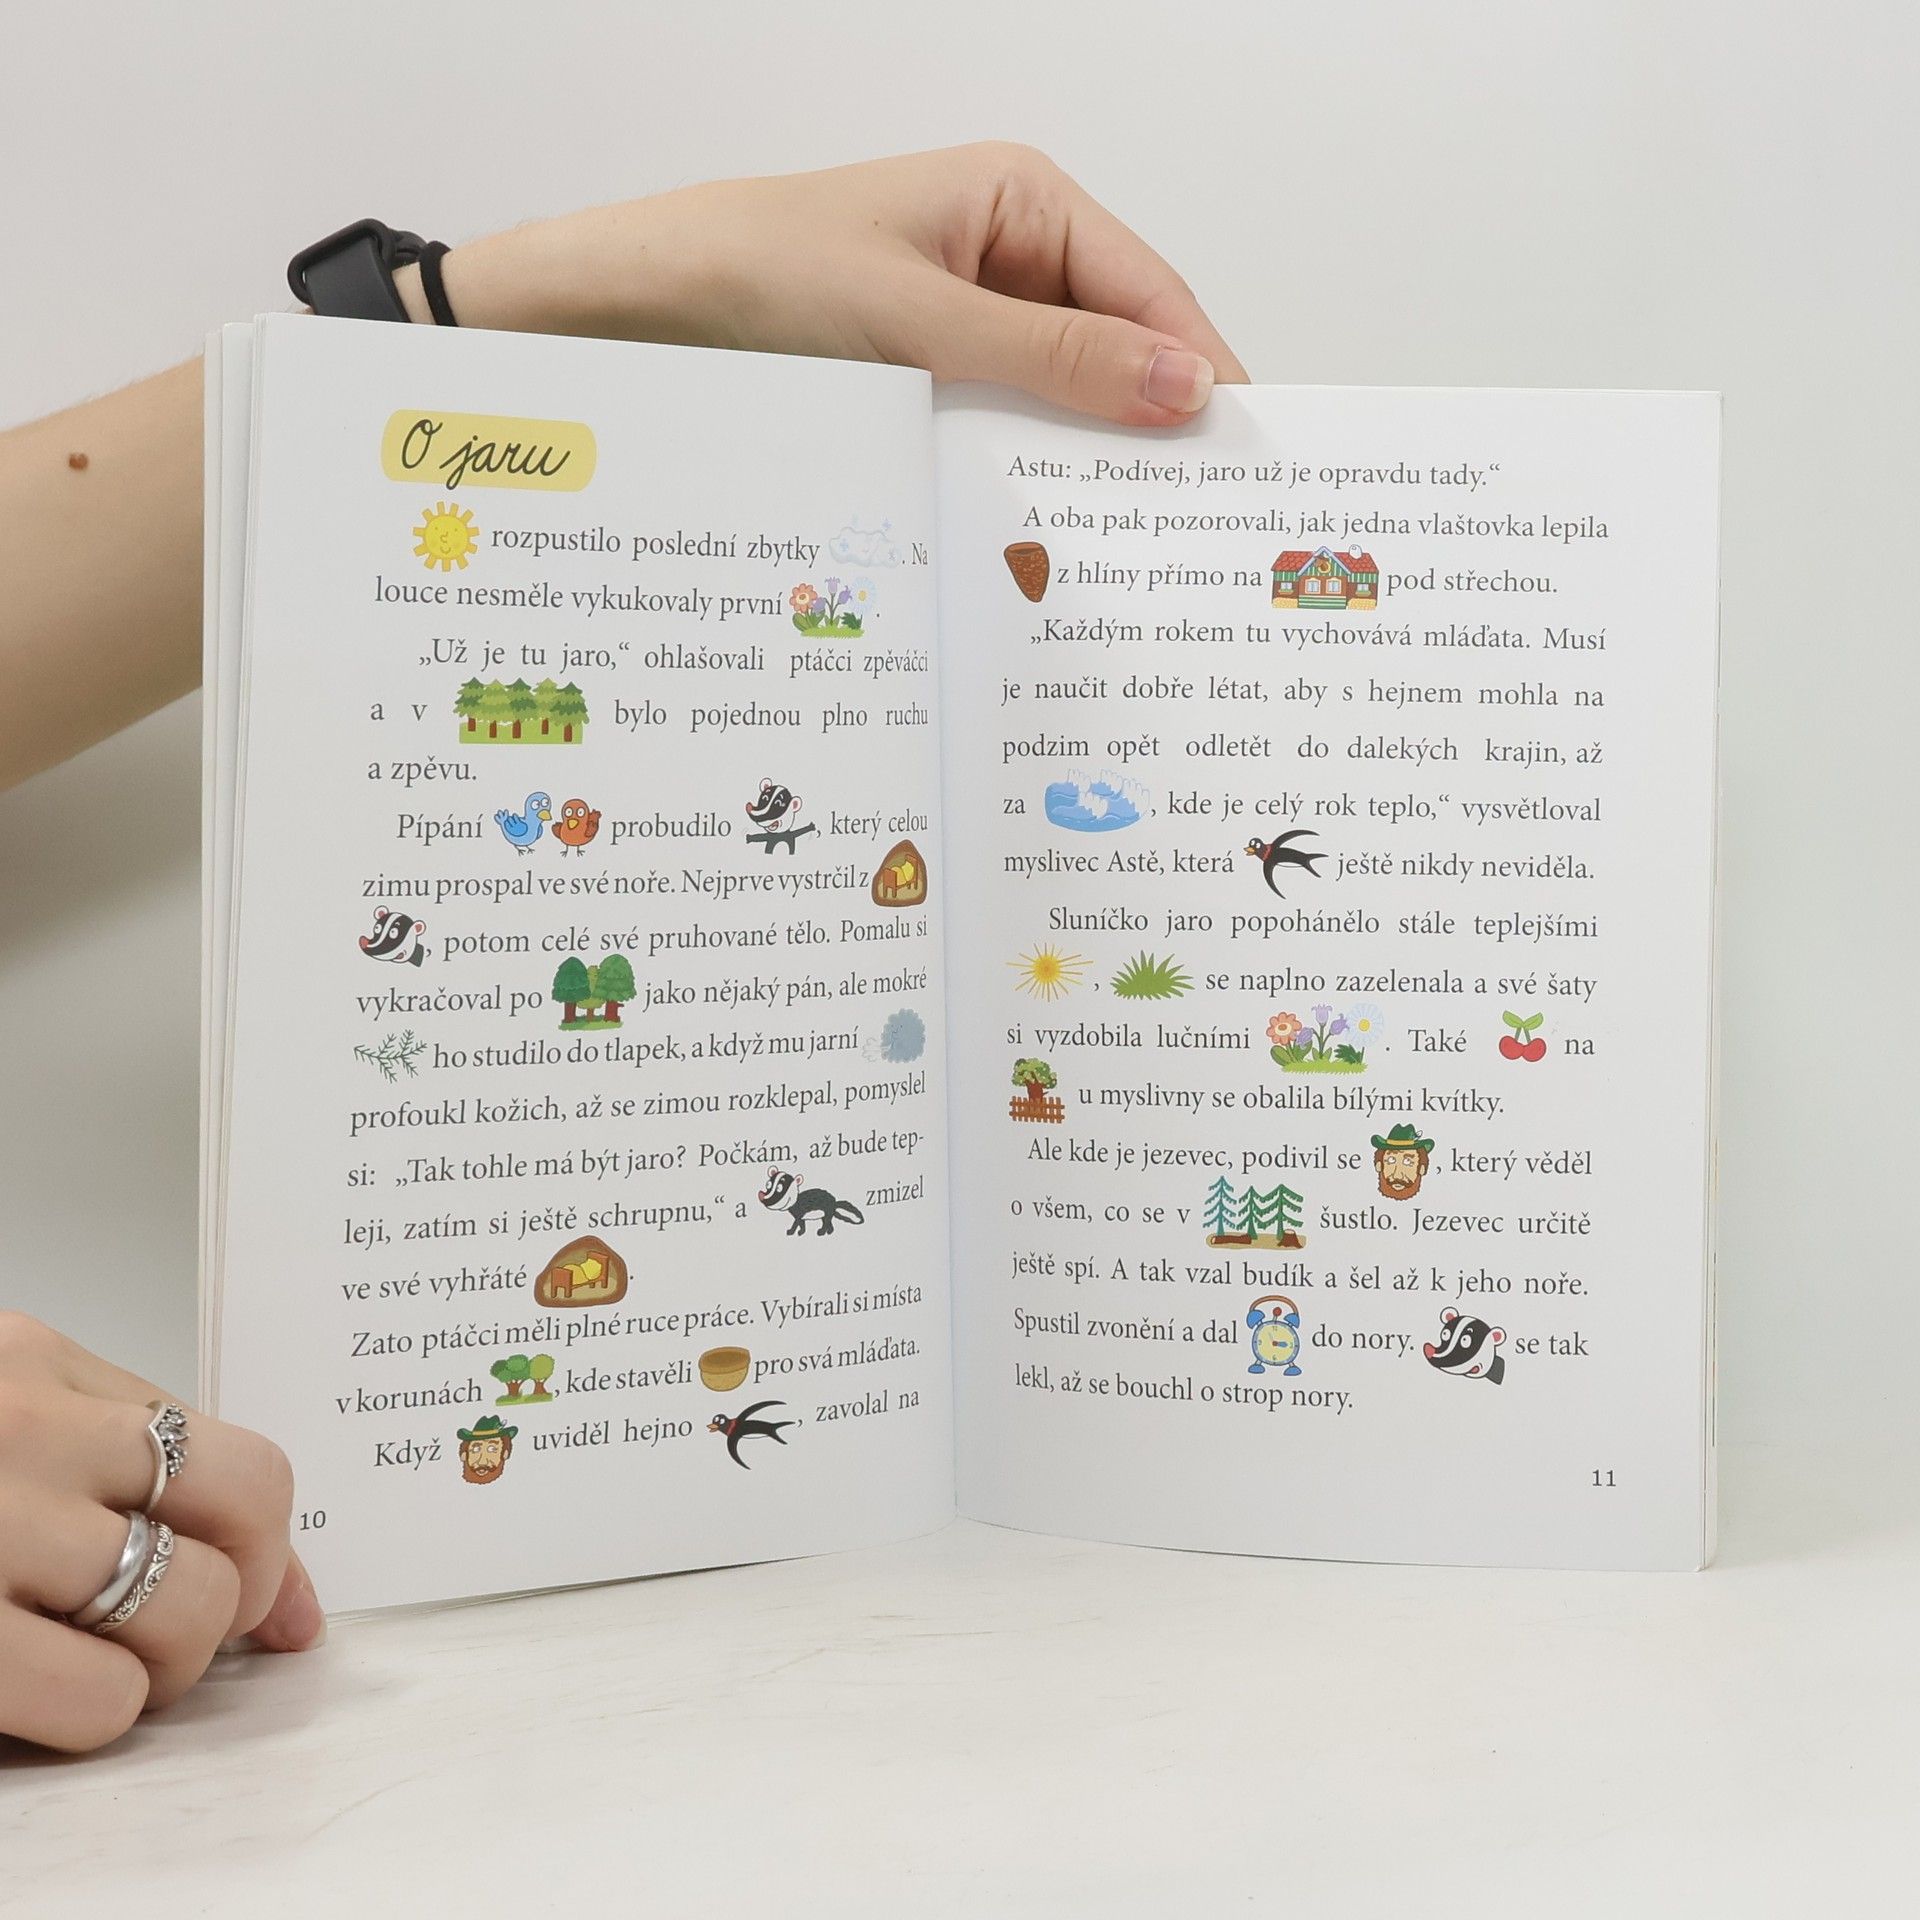 O jaru
rozpustilo poslední zbytky . Na
louce nesměle vykukovaly první .
„Už je tu jaro,“ ohlašovali ptáčci zpěváčci
a v bylo pojednou plno ruchu
a zpěvu.
Pípání probudilo , který celou
zimu prospal ve své noře. Nejprve vystrčil z
, potom celé své pruhované tělo. Pomalu si
vykračoval po jako nějaký pán, ale mokré
ho studilo do tlapek, a když mu jarní
profoukl kožich, až se zimou rozklepal, pomyslel
si: „Tak tohle má být jaro? Počkám, až bude tep-
leji, zatím si ještě schrupnu,“ a zmizel
ve své vyhřáté .
Zato ptáčci měli plné ruce práce. Vybírali si místa
v korunách , kde stavěli pro svá mláďata.
Když uviděl hejno , zavolal na
10
Astu: „Podívej, jaro už je opravdu tady.“
A oba pak pozorovali, jak jedna vlaštovka lepila
z hlíny přímo na pod střechou.
„Každým rokem tu vychovává mláďata. Musí
je naučit dobře létat, aby s hejnem mohla na
podzim opět odletět do dalekých krajin, až
za , kde je celý rok teplo,“ vysvětloval
myslivec Astě, která ještě nikdy neviděla.
Sluníčko jaro popohánělo stále teplejšími
, se naplno zazelenala a své šaty
si vyzdobila lučními . Také na
u myslivny se obalila bílými kvítky.
Ale kde je jezevec, podivil se , který věděl
o všem, co se v šustlo. Jezevec určitě
ještě spí. A tak vzal budík a šel až k jeho noře.
Spustil zvonění a dal do nory. se tak
lekl, až se bouchl o strop nory.
11